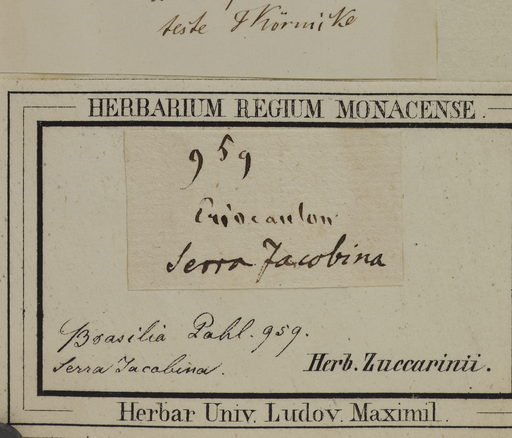 teste FKörnicke
HERBARIUM REGIUM MONACENSE.
959
Eriocaulon
Serra Jacobina
Brasilia Pahl. 959.
Serra Jacobina.
Herb. Zuccarinii.
Herbar Univ. Ludov. Maximil.